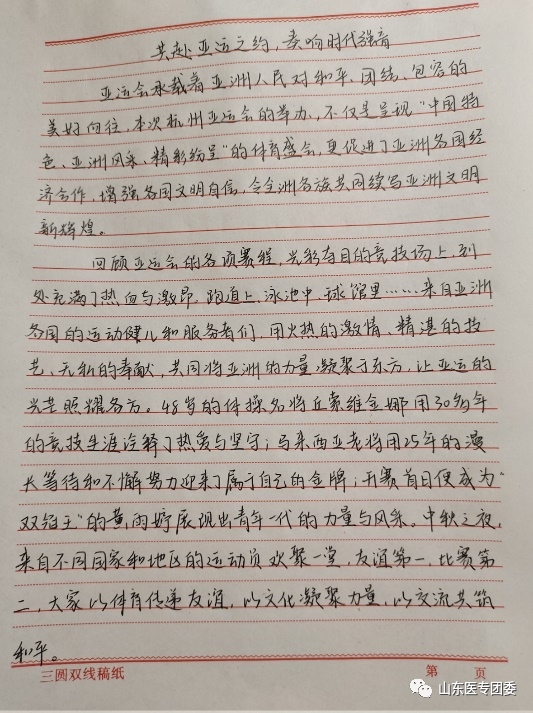 共赴亚运之约，奏响时代强音
亚运会承载着亚洲人民对和平、团结、包容的
美好向往，本次杭州亚运会的举办，不仅是呈现“中国特
色、亚洲风采、精彩纷呈”的体育盛会，更促进了亚洲各国经
济合作，增强各国文明自信，令全洲各族共同续写亚洲文明
新辉煌。
回顾亚运会的各项赛程，光彩夺目的竞技场上，到
处充满了热血与激昂，跑道上、泳池中、球馆里……来自亚洲
各国的运动健儿和服务者们，用火热的激情、精湛的技
艺、无私的奉献，共同将亚洲的力量凝聚于东方，让亚运的
光芒照耀各方。48岁的体操名将丘索维金娜用30多年
的竞技生涯诠释了热爱与坚守；马来西亚老将用25年的漫
长等待和不懈努力迎来了属于自己的金牌；开赛首日便成为“
双冠王”的黄雨婷展现出青年一代的力量与风采。中秋之夜，
来自不同国家和地区的运动员欢聚一堂，友谊第一，比赛第
二，大家以体育传递友谊，以文化凝聚力量，以交流共筑
和平。
三圆双线稿纸 第 页
山东医专团委